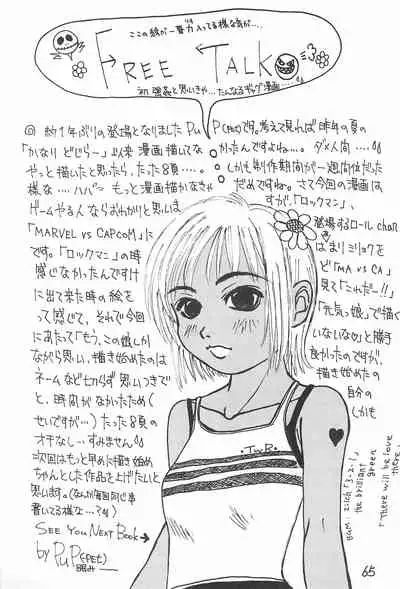 ここの線が一番力入ってる様な気が‥‥
FREE TALK
初、強姦と思いきや‥たんなるギャグ漫画‥‥
◎ 約1年ぶりの登場となりました Pu P(PET)です。考えて見れば昨年の夏の
「かなり どじらー」以来 漫画描いてな かったんですよねー。。ダメ人間‥‥
やっと描いたと思ったら、たった8頁‥‥。 しかも制作期間が一週間位だった
様な‥‥ハハハー もっと漫画描かなきゃ だめですね。さて今回の漫画は
ゲームやる人ならおわかりと思いま すが、「ロックマン」、
「MARVEL vs CAPCOM」に 登場するロールchan
です。「ロックマン」の時 はまりミリョクを
感じなかったんですけ ど「MA vs CA」
に出て来た時の絵を 見て「これだー!!」
って感じで、それで今回 「元気っ娘」で描く
にあたって「もう、この娘しか いないなぁ」と勝手
ながら思い、描き始めたのは 良かったのですが、
ネームなど切らず 思いつきで 描き始めたの
と、時間がなかったため( 自分の
せいですが‥)たった8頁の しかも
オチなし‥すみません
※次回はもっと早めに描き始め
ちゃんとした作品を上げたいと
思います。(なんか毎回同じ事
書いてる様な‥?)
SEE YOU NEXT BOOK→
by PuP(PET)
TypeB
BGM zilch「3・2・1」
the brilliant green
「There will be love there」
65